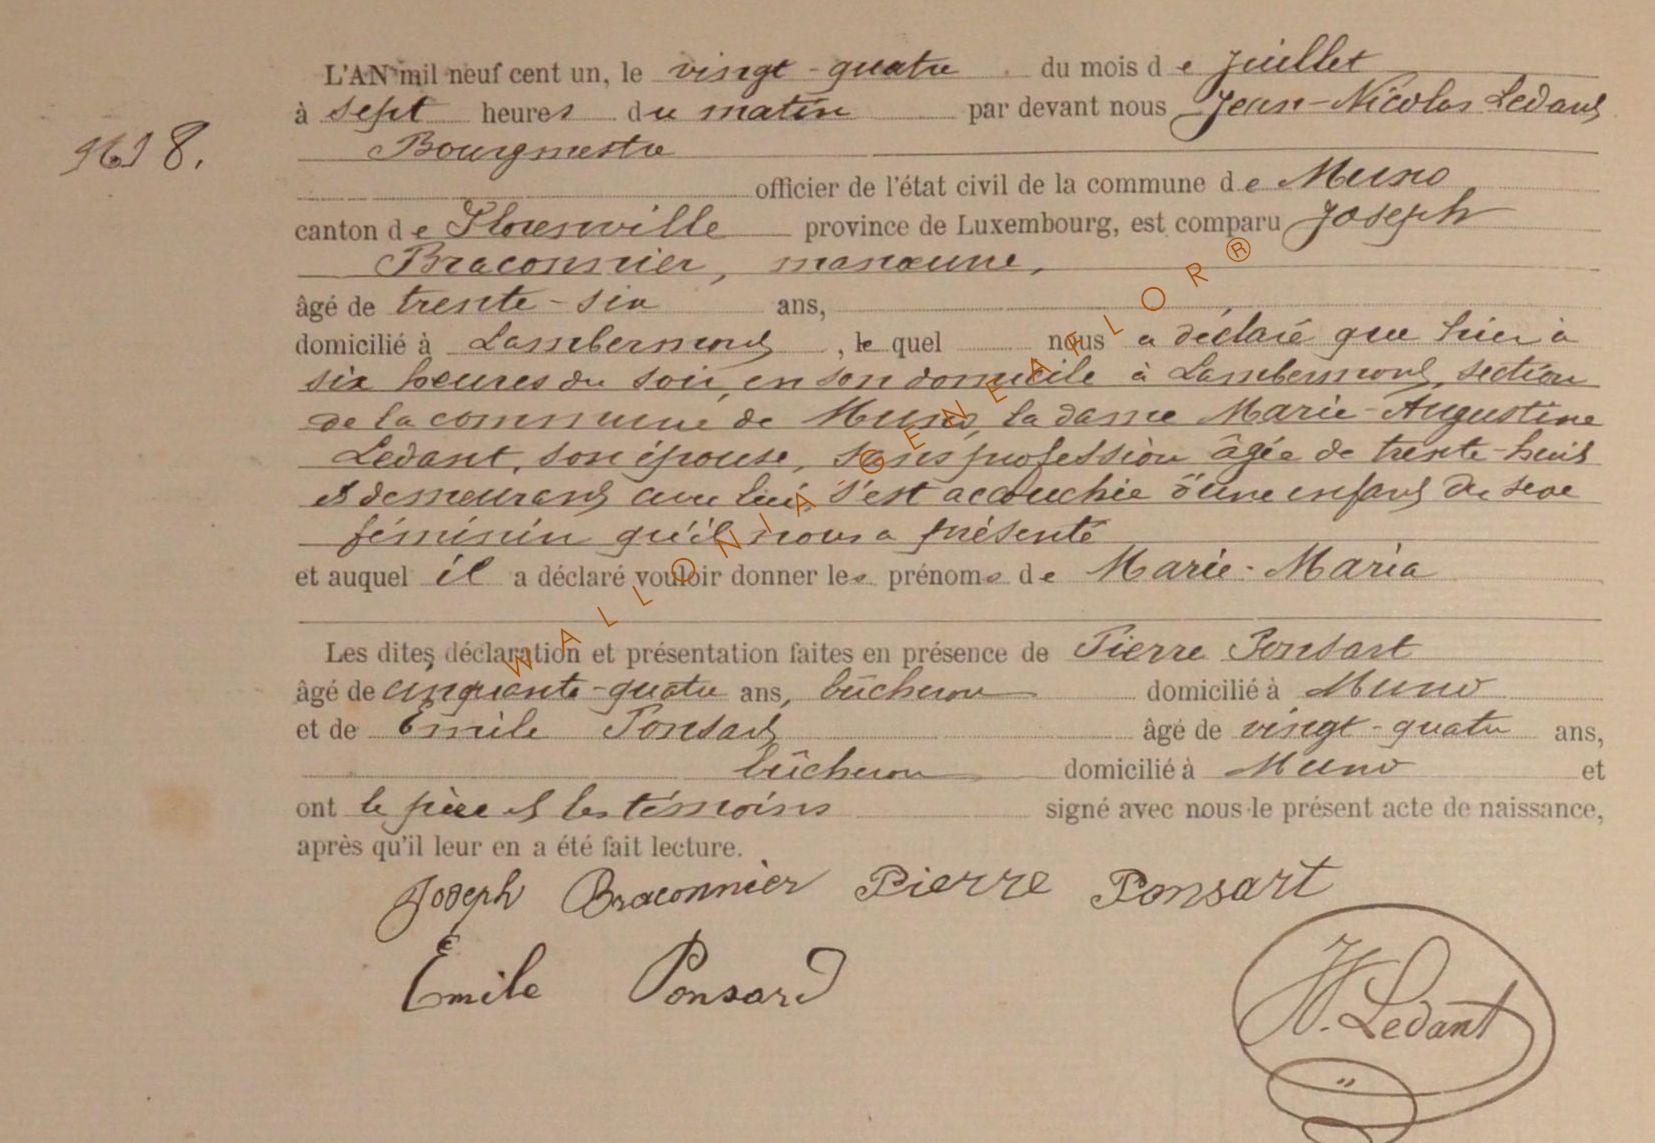 L'AN mil neuf cent un, le vingt-quatre du mois de juillet
à sept heures du matin par devant nous Jean-Nicolas Ledant
18.
Bourgmestre
officier de l'état civil de la commune de Muno
canton de Florenville province de Luxembourg, est comparu Joseph
Braconnier, manœuvre,
âgé de trente-six ans,
domicilié à Lambermont, le quel nous a déclaré que hier à
six heures du soir, en son domicile à Lambermont, section
de la commune de Muno, la dame Marie-Augustine
Ledant, son épouse, sans profession âgée de trente-huit
et demeurant avec lui s'est accouchée d'une enfant du sexe
féminin qu'il nous a présenté
et auquel il a déclaré vouloir donner les prénoms de Marie-Maria
Les dites déclaration et présentation faites en présence de Pierre Ponsart
âgé de cinquante-quatre ans, bûcheron domicilié à Muno
et de Emile Ponsart âgé de vingt-quatre ans,
bûcheron domicilié à Muno et
ont le père et les témoins signé avec nous le présent acte de naissance,
après qu'il leur en a été fait lecture.
Joseph Braconnier Pierre Ponsart
Emile Ponsard
N. Ledant
WALLONIA GENEAFLOR®